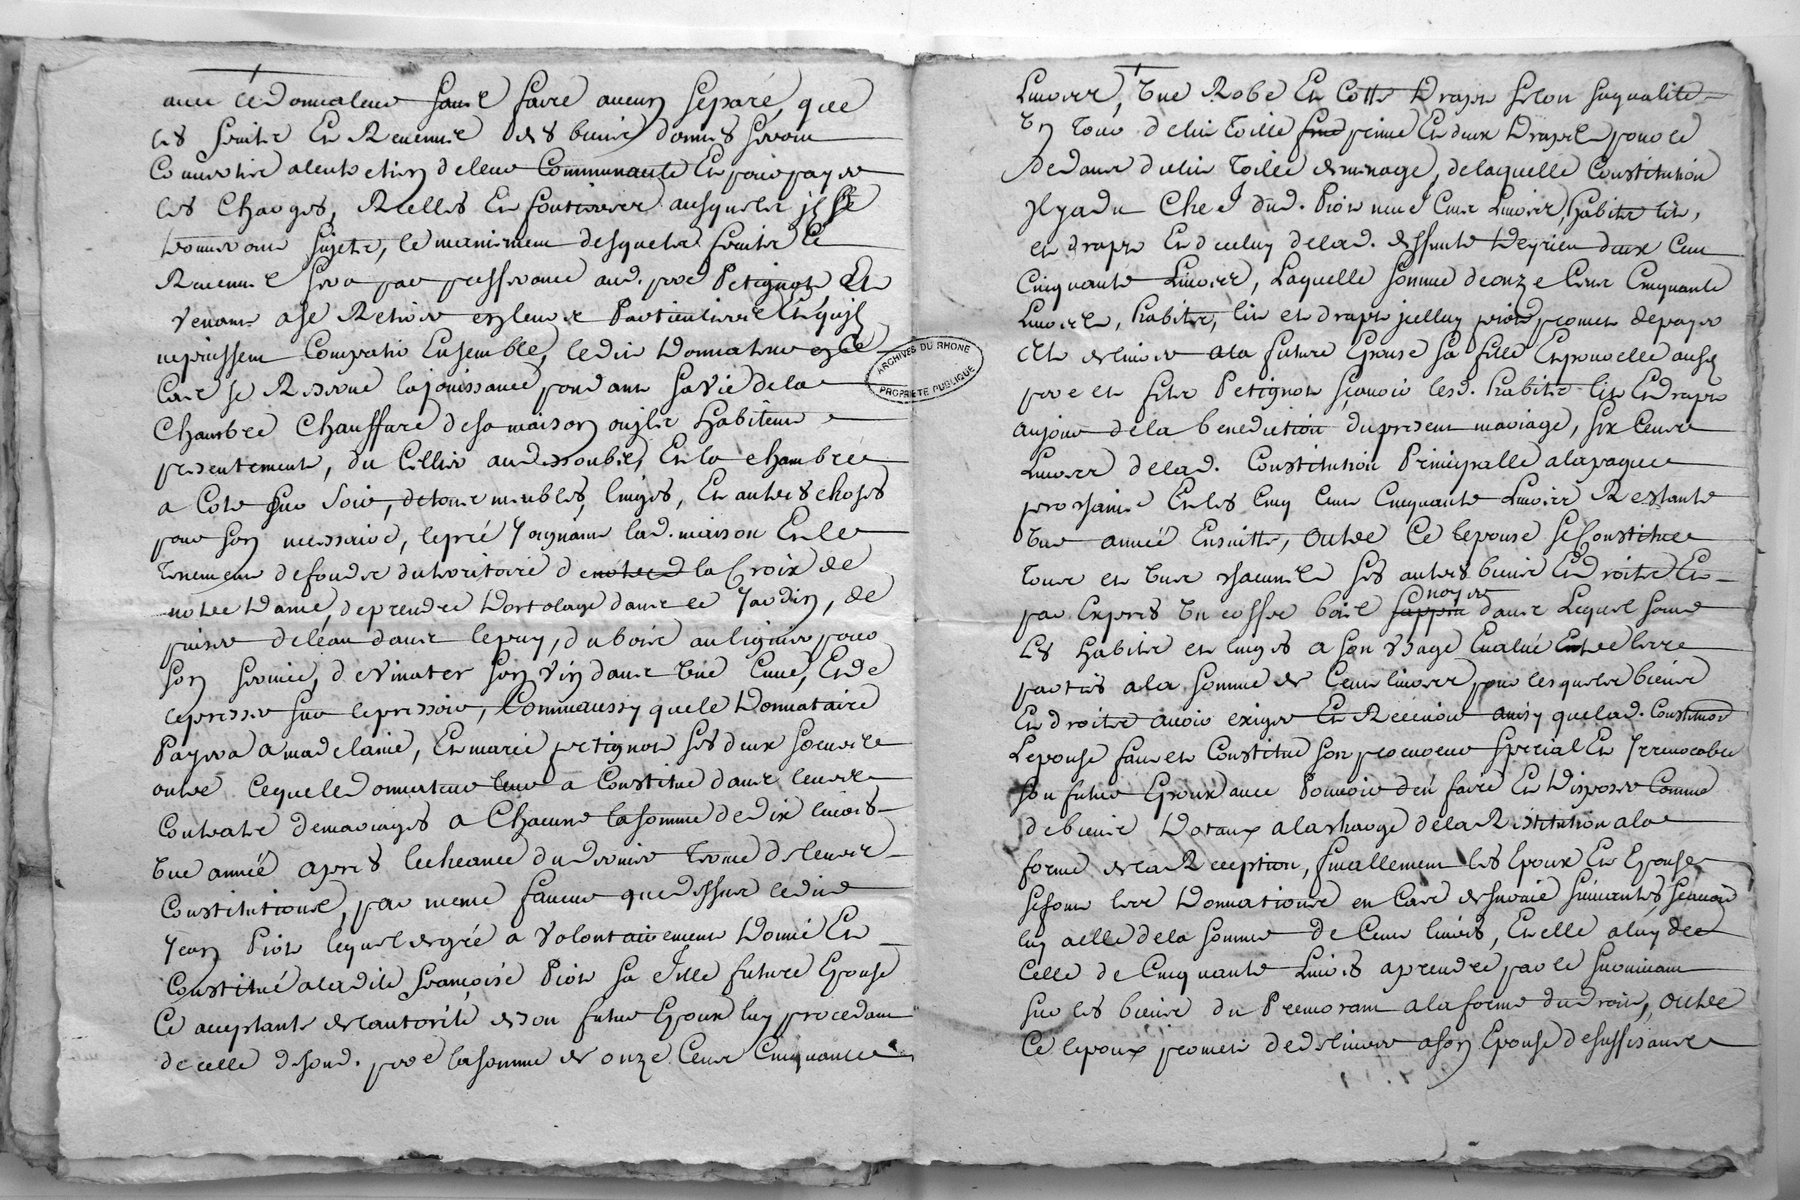 avec led. donnateur sans faire aucun separé, que
les fruits et Revenus des biens donnés seront
convertis a lentretien de leur Communauté Et pour payer
les Charges, Réelles Et foncieres ausquelles ils se
trouveront sujets, le maniment desquels fruits et
Revenus sera par preferance aud. pere Petignot Et
venant a se Retirer en leurs Particuliers Et qu'ils
ne puissent Compatir Ensemble, ledit Donnateur en ce
Cas se Reserve la jouissance pendant sa vie de la
Chambre Chauffure de sa maison ou ils habitent
presentement, du Cellier au dessoubs, Et la chambre
a Coté sur soir, de tous meubles, linges, Et autres choses
pour son necessaire, le pré joignant lad. maison Et le
tenement de fonds du territoire de la Croix de
notre Dame, de prendre Dortolage dans le Jardin, de
puiser de l'eau dans le puy, du bois au lignier pour
son service, de vinater son vin dans une Cuve, Et de
le presser sur le pressoir, Comme aussy que le Donnataire
Payera a madelaine, Et marie petignot ses deux soeurs
outre ce que led. donnateur leur a Constitué dans leurs
Contrats de mariages a Chacune la somme de dix livres
une année apres l'echeance du dernier terme de leurs
Constitutions, par meme faveur que dessus ledit
Jean Piot lequel de gré a volontairement Donné Et
Constitué a ladite françoise Piot sa fille future Epouse
Ce acceptante de l'autorité de son futur Epoux luy procedant
de celle de sond. pere la somme de onze Cens Cinquante
Livres, une Robe Et Cotte Drapt selon sa qualité
un tour de lit toille peinte Et deux Draps pour le
dedans du lit toille de menage, de laquelle Constitution
Il y a du Chef dud. Piot neuf Cens Livres, habits lit,
et drapts Et de celuy de lad. deffunte Veyrieu deux Cens
Cinquante Livres, Laquelle somme de onze Cens Cinquante
Livres, habits, lit et drapts icelluy piot promet de payer
Et delivrer a la future Epouse sa fille Et pour elle ausd.
pere et fils Petignot sçavoir lesd. habits lit Et drapts
au jour de la benediction du present mariage, six Cens
Livres de lad. Constitution Principalle a la paques
prochaine Et les Cinq Cens Cinquante Livres Restants
une année Ensuitte, outre Ce l'epouse se Constitue
tous et uns chacuns ses autres biens Et droits Et
par Exprès un coffre bois sappin noyer dans Lequel sont
les habits et linges a son usage Evalué Entre les
parties a la somme de Cent livres, pour lesquels biens
Et droits avoir exiger Et Recevoir ainsy que lad. Constitution
L'epouse fait et Constitue son procureur special Et Irrevocable
son futur Epoux avec Pouvoir d'en faire Et Disposer Comme
de biens Dotaux a la charge de la Restitution a la
forme de la Reception, finallement les Epoux Et Epouse
se font les Donnations en Cas de survie suivantes, sçavoir
luy a elle de la somme de Cent livres, Et elle a luy de
celle de Cinquante Livres a prendre par le survivant
sur les biens du Premorant a la forme du droit, outre
Ce l'epoux promet de delivrer a son Epouse de suffisants
ARCHIVES DU RHONE
PROPRIETE PUBLIQUE